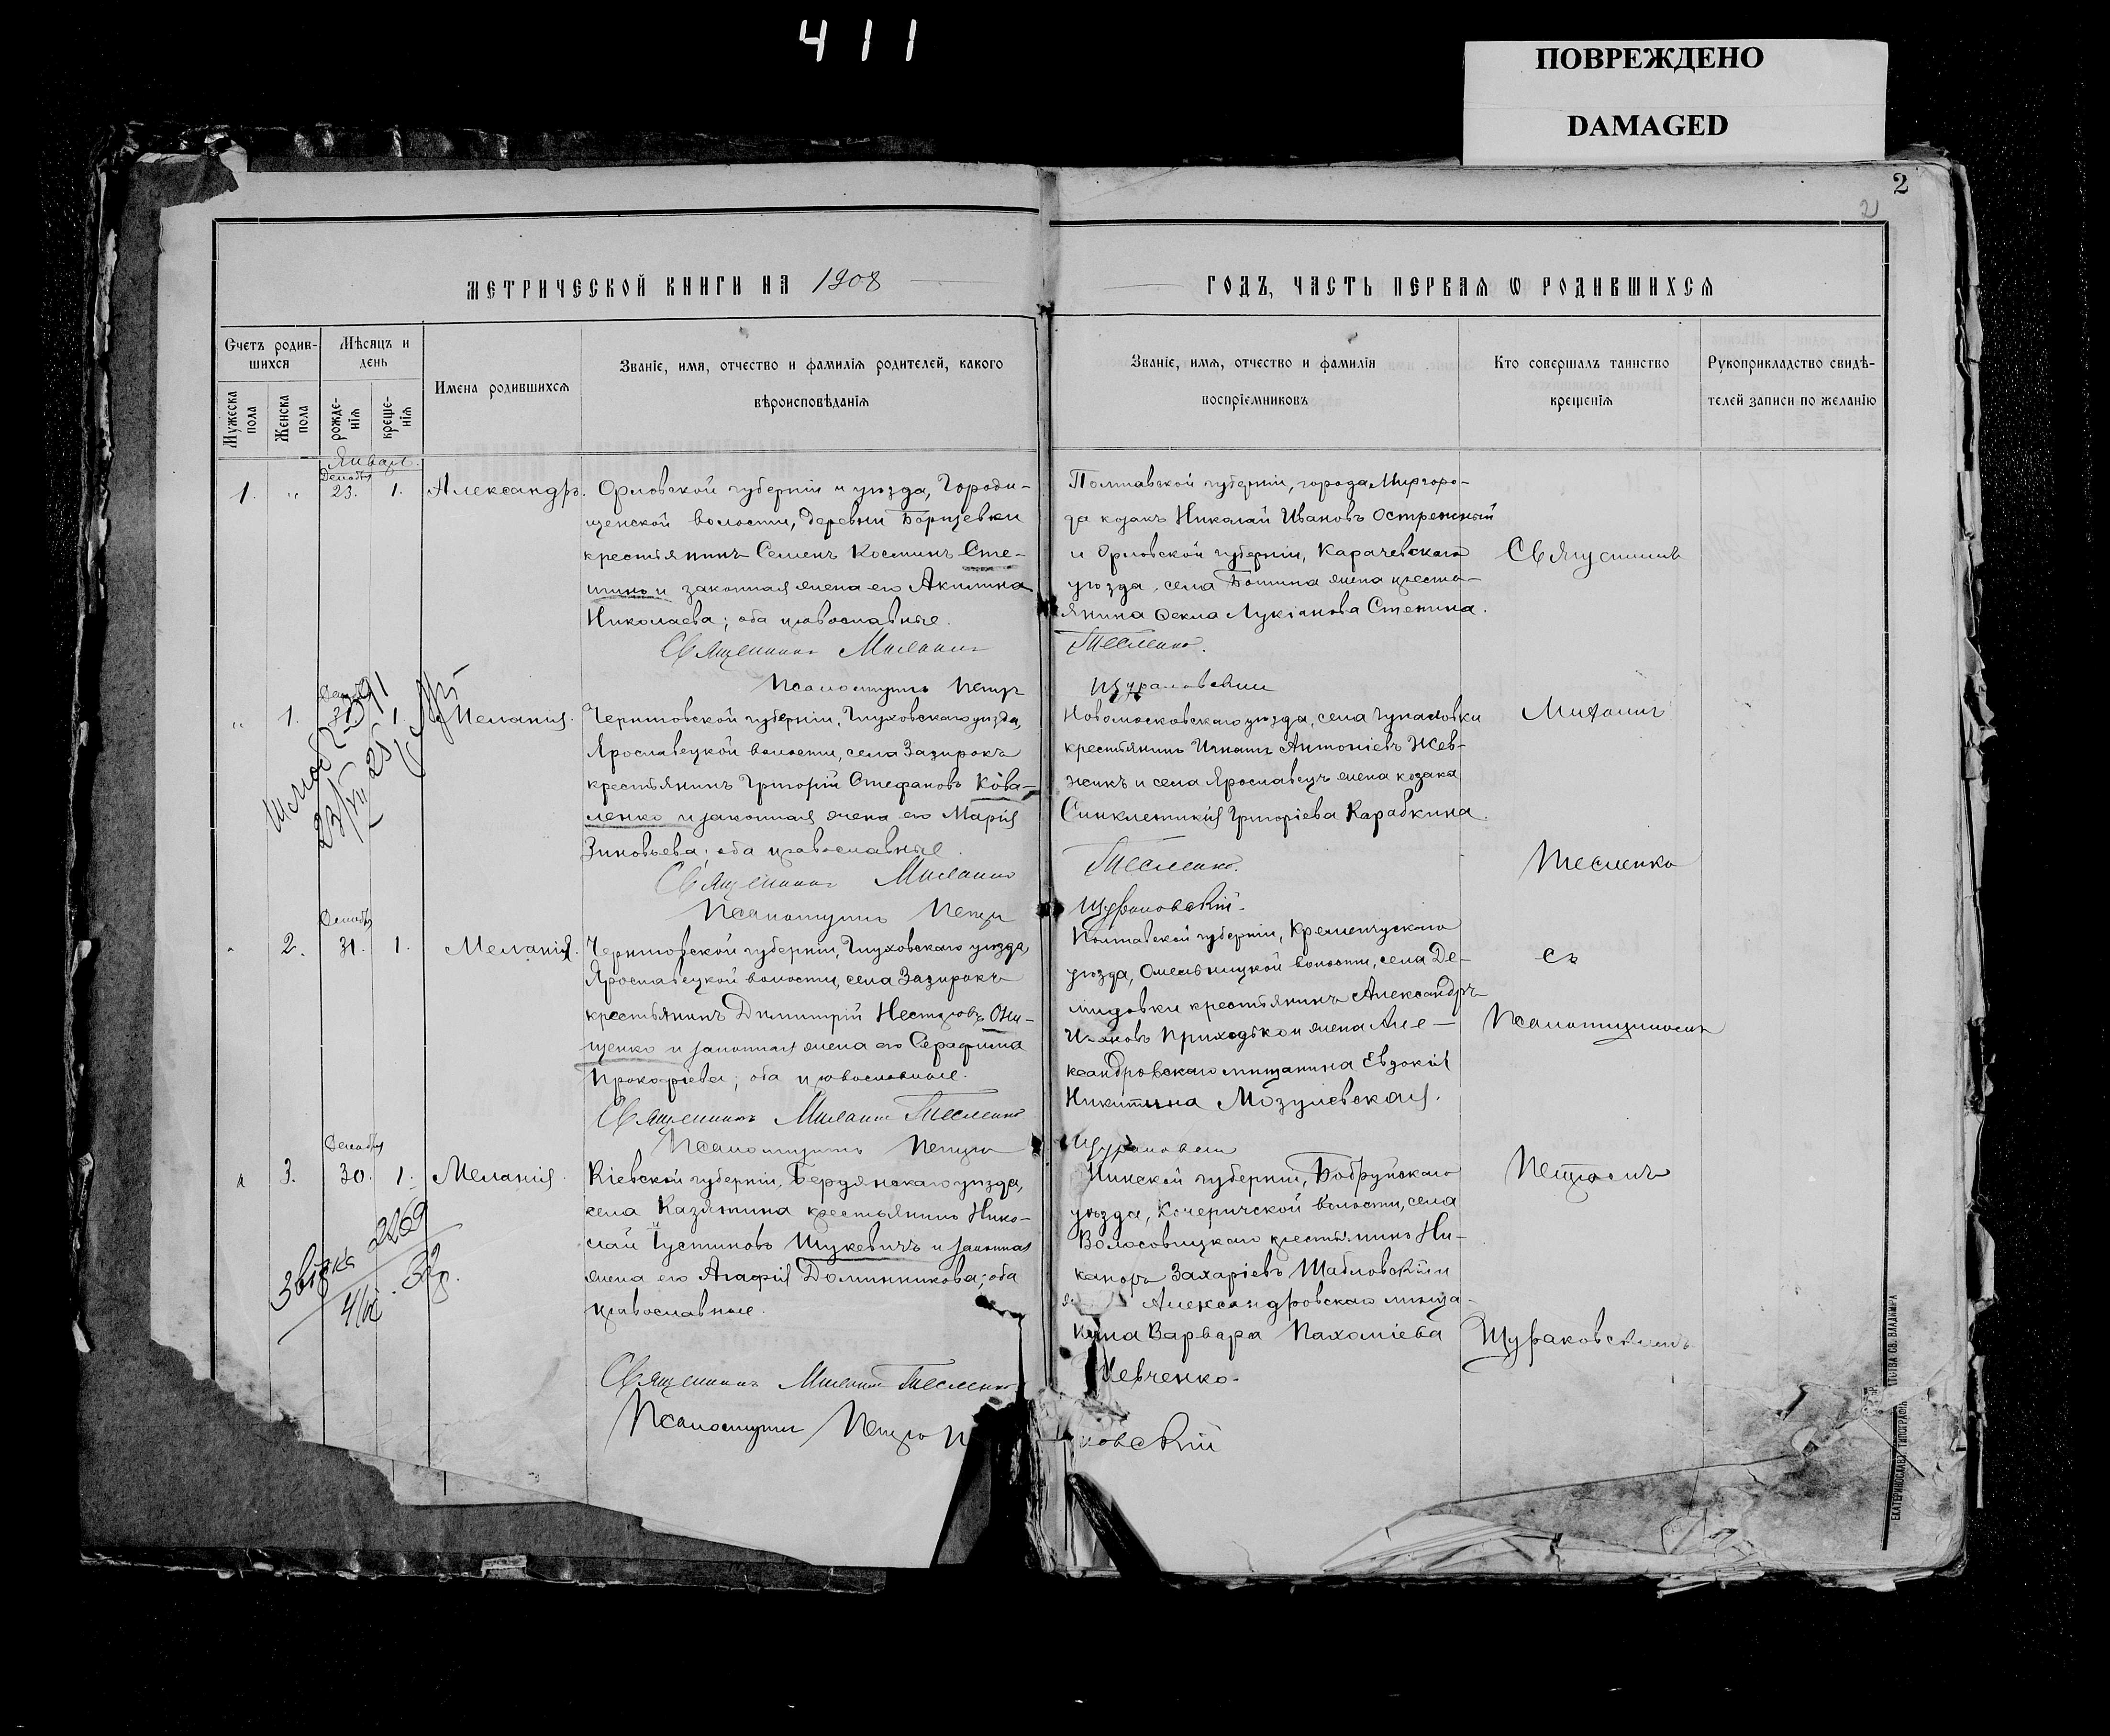 411
ПОВРЕЖДЕНО
DAMAGED
2
2
МЕТРИЧЕСКОЙ КНИГИ НА 1908
ГОДЪ, ЧАСТЬ ПЕРВАЯ Ѡ РОДИВШИХСЯ
Счетъ родив-
шихся
Мужеска пола
Женска пола
Мѣсяцъ и
день
рожде-
нія
креще-
нія
Имена родившихся
Званіе, имя, отчество и фамилія родителей, какого
вѣроисповѣданія
Званіе, имя, отчество и фамилія
воспріемниковъ
Кто совершалъ таинство
крещенія
Рукоприкладство свидѣ-
телей записи по желанію
Январь
Декабр
1. " 23. 1. Александръ.
Орловской губерніи и уѣзда, Городи-
щенской волости, деревни Борщевки
крестьянинъ Семенъ Костинъ Сте-
и законная жена его Акилина
Николаева; оба православные.
Священникъ Михаилъ
Псаломщикъ Петръ
Полтавской губерніи, города Миргоро-
да козакъ Николай Ивановъ
и Орловской губерніи, Карачевскаго
уѣзда, села жена кресть-
янина Ѳекла Лукіанова Степина.
Тесленко.
Щураковскій
Священникъ
Декабр
" 1. 31 1 Меланія.
2391
23/XII 25
Черниговской губерніи, Глуховскаго уѣзда,
Ярославецкой волости, села Зазирокъ
крестьянинъ Григорій Стефановъ Кова-
ленко и законная жена его Марія
Зиновьева; оба православные.
Священникъ Михаилъ
Псаломщикъ Петръ
Новомосковскаго уѣзда, села
крестьянинъ Игнатъ Антоніевъ Жев-
жикъ и села Ярославецъ жена козака
Синклетикія Григоріева Карабкина.
Тесленко.
Щураковскій.
Михаилъ
Тесленко
Декабр
" 2. 31. 1. Меланія.
Черниговской губерніи, Глуховскаго уѣзда,
Ярославецкой волости, села Зазирокъ
крестьянинъ Димитрій Несторовъ Они-
щенко и законная жена его Серафима
Прокофіева; оба православные.
Священникъ Михаилъ Тесленко
Псаломщикъ Петръ
Полтавской губерніи, Кременчугскаго
уѣзда, Омельницкой волости, села Де-
мидовки крестьянинъ Александръ
Ивановъ Приходько и жена Але-
ксандровскаго мѣщанина Евдокія
Никитина Мозулевская.
Щураковскій
съ
Псаломщикомъ
Декабр
" 3. 30. 1. Меланія.
2269
4/
Кіевской губерніи, Бердянскаго уѣзда,
села Казятина крестьянинъ Нико-
лай Іустиновъ Шукевичъ и законная
жена его Агафія Доминникова; оба
православные.
Священникъ Михаилъ Тесленко
Псаломщикъ Петръ
Минской губерніи, Бобруйскаго
уѣзда, Кочеричской волости, села
крестьянинъ Ни-
каноръ Захаріевъ Шабловскій и
Александровскаго мѣща-
нина Варвара Пахоміева
Шевченко.
новскій
Петромъ
Щураковскимъ
ЕКАТЕРИНОСЛАВЪ ТИПОГРАФІЯ СВ. ВЛАДИМІРА